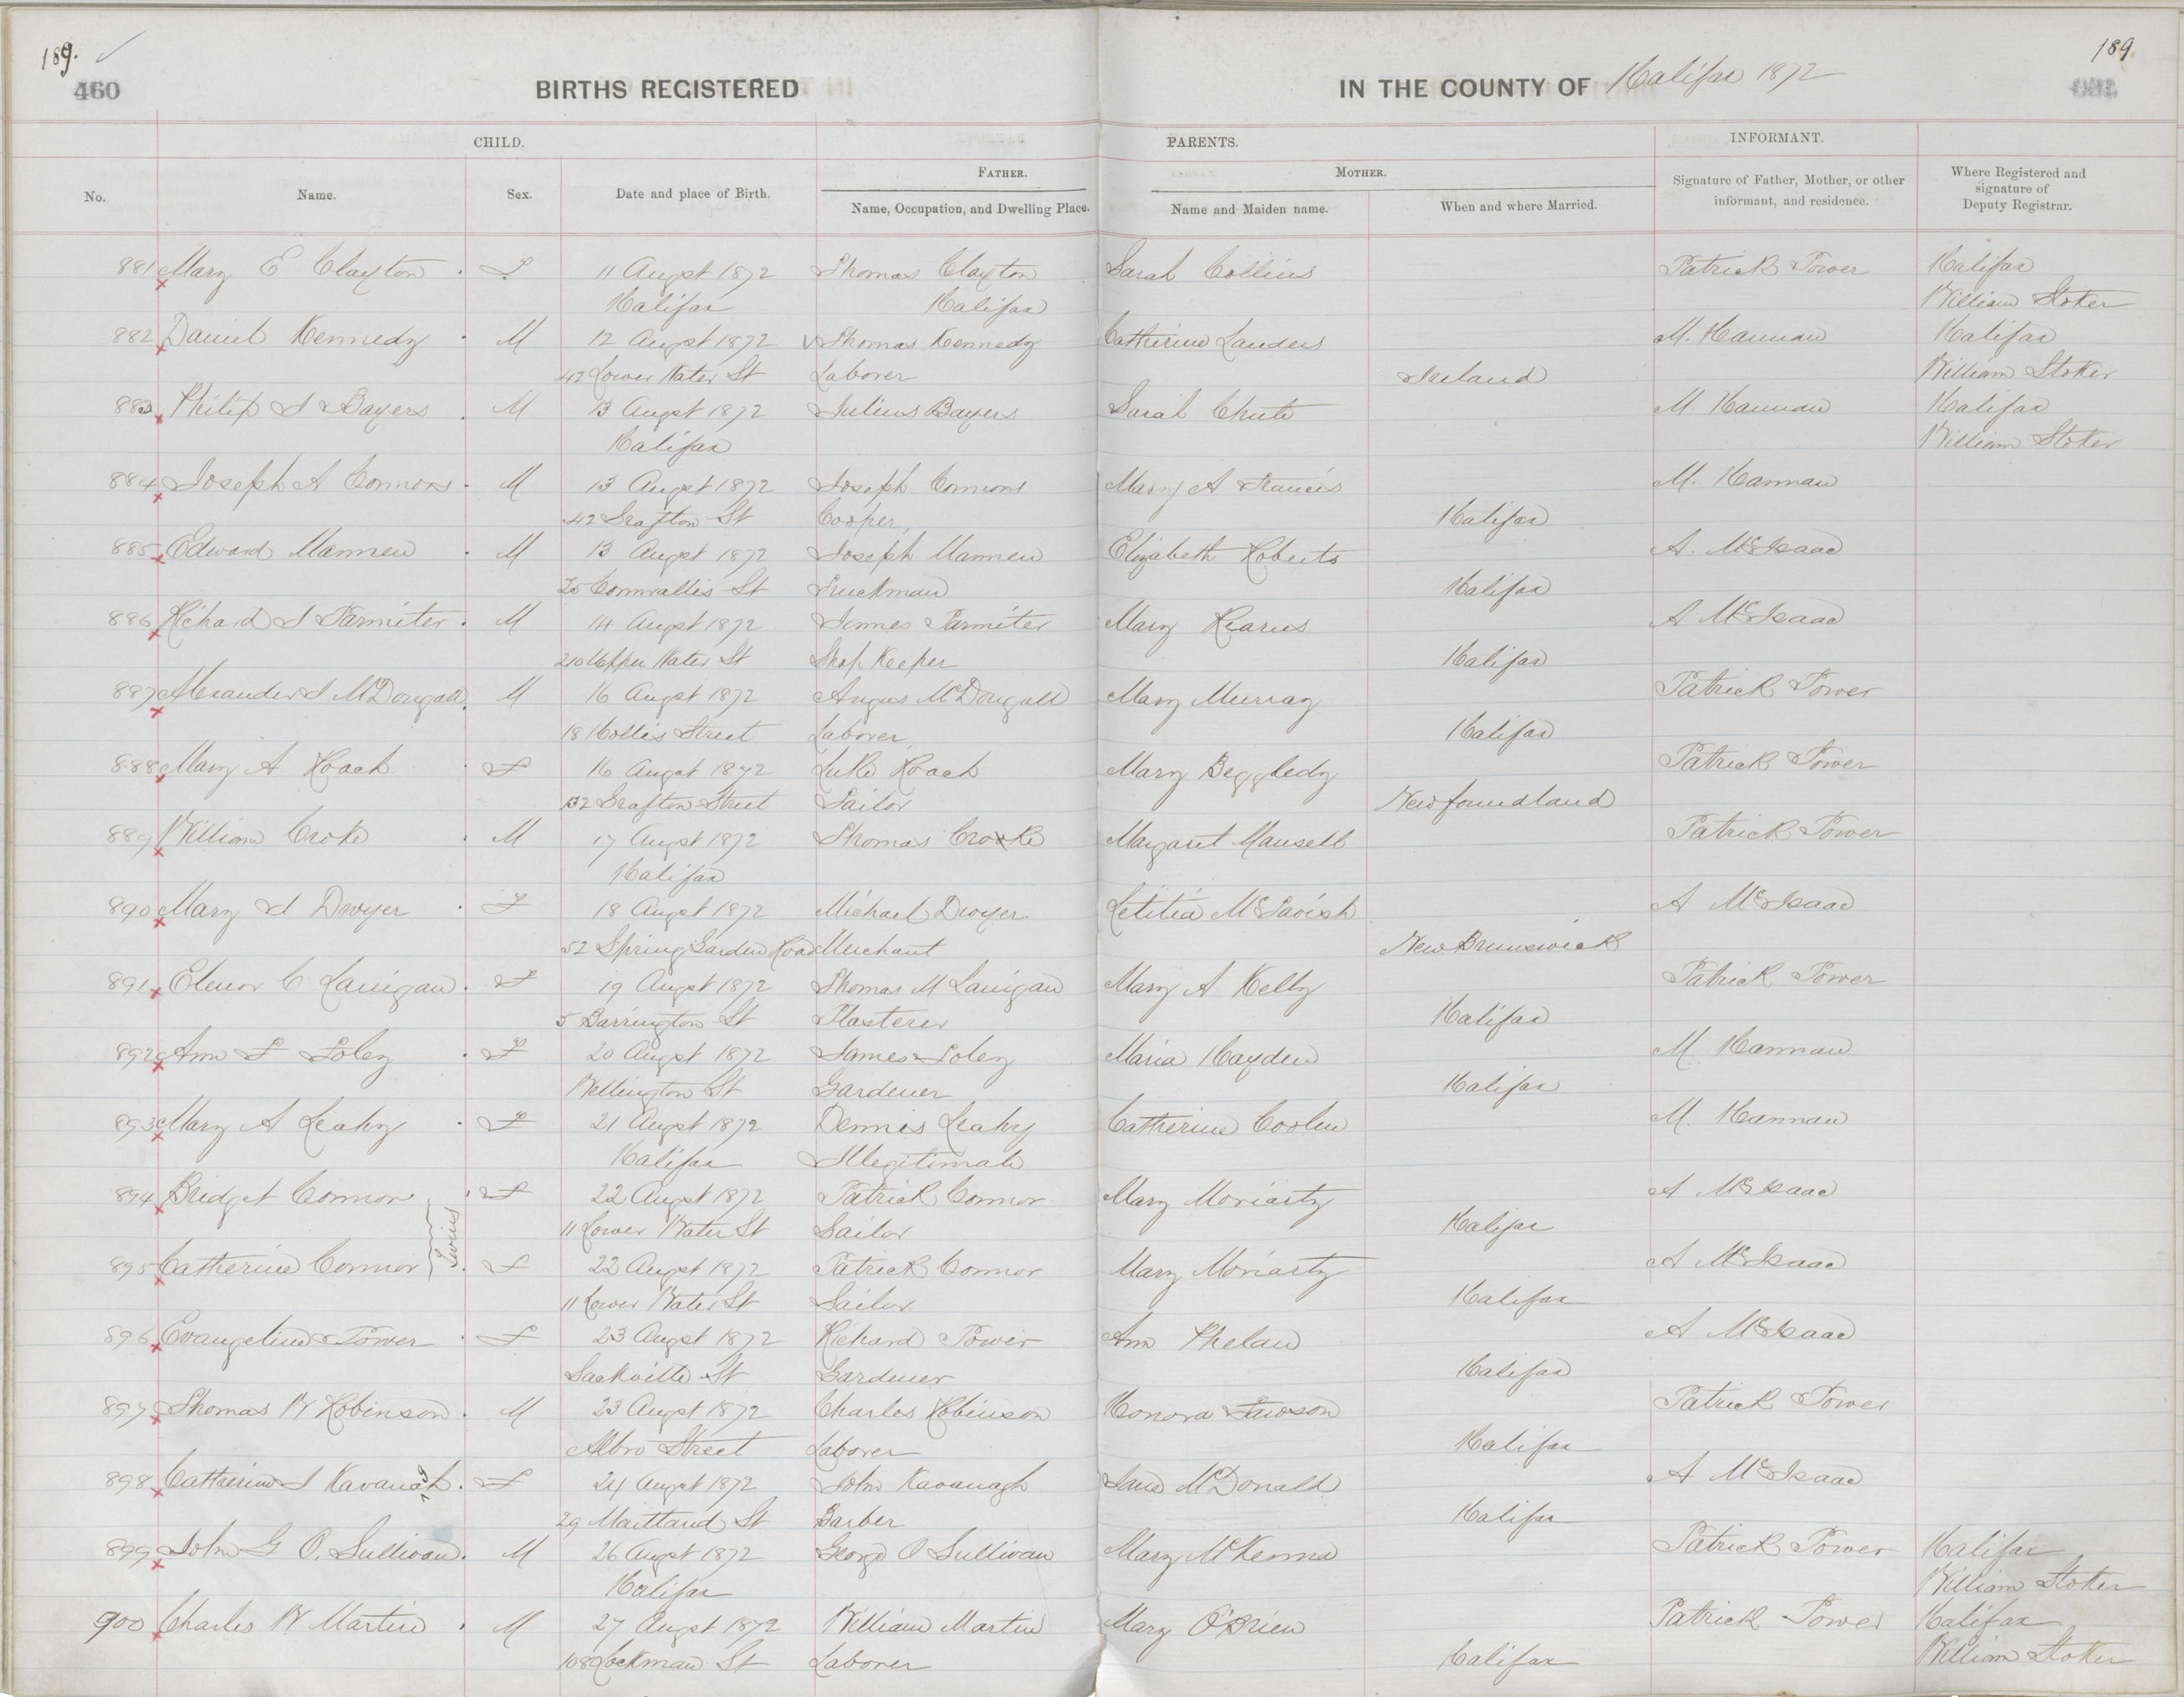 189.
189.
460
BIRTHS REGISTERED IN THE COUNTY OF Halifax 1872
CHILD. PARENTS. INFORMANT.
No. Name. Sex. Date and place of Birth. FATHER. MOTHER. Signature of Father, Mother, or other informant, and residence. Where Registered and signature of Deputy Registrar.
Name, Occupation, and Dwelling Place. Name and Maiden name. When and where Married.
881 Mary E Clayton F 11 Augst 1872 Thomas Clayton Sarah Collins Patrick Power Halifax
Halifax Halifax William Stoker
882 Daniel Kennedy M 12 Augst 1872 Thomas Kennedy Catherine Landers M. Hannan Halifax
42 Lower Water St Laborer Ireland William Stoker
883 Philip J Bayers M 13 Augst 1872 Julius Bayers Sarah Chute M. Hannan Halifax
Halifax William Stoker
884 Joseph A Connors M 13 Augst 1872 Joseph Connors Mary A Francis M. Hannan
42 Grafton St Cooper, Halifax
885 Edward Mannen M 13 Augst 1872 Joseph Mannen Elizabeth Roberts A. McIsaac
25 Cornwallis St Truckman Halifax
886 Richard J Parmiter M 14 Augst 1872 James Parmiter Mary Kearns A McIsaac
210 Upper Water St Shop Keeper Halifax
887 Alexander J McDougall M 16 Augst 1872 Angus McDougall Mary Murray Patrick Power
18 Hollis Street Laborer Halifax
888 Mary A Roach F 16 Augst 1872 Luke Roach Mary Beggledy Patrick Power
132 Grafton Street Sailor Newfoundland
889 William Croke M 17 Augst 1872 Thomas Crooke Margaret Mansell Patrick Power
Halifax
890 Mary J Dwyer F 18 Augst 1872 Michael Dwyer Letitia McTavish A McIsaac
52 Spring Garden Road Merchant New Brunswick
891 Elenor C Lanigan F 19 Augst 1872 Thomas M Lanigan Mary A Kelly Patrick Power
5 Barrington St Plasterer Halifax
892 Ann F Foley F 20 Augst 1872 James Foley Maria Hayden M. Hannan
Wellington St Gardener Halifax
893 Mary A Leahy F 21 Augst 1872 Dennis Leahy Catherine Coolen M. Hannan
Halifax Illegitimate
894 Bridget Connor F 22 Augst 1872 Patrick Connor Mary Moriarty A McIsaac
Twins
11 Lower Water St Sailor Halifax
895 Catherine Connor F 22 Augst 1872 Patrick Connor Mary Moriarty A McIsaac
11 Lower Water St Sailor Halifax
896 Evangeline Power F 23 Augst 1872 Richard Power Ann Phelan A McIsaac
Sackville St Gardener Halifax
897 Thomas W Robinson M 23 Augst 1872 Charles Robinson Honora Lawson Patrick Power
Albro Street Laborer Halifax
898 Catherine J Kavanagh F 24 Augst 1872 John Kavanagh Jane McDonald A McIsaac
29 Maitland St Barber Halifax
899 John G O. Sullivan M 26 Augst 1872 George O Sullivan Mary McKenna Patrick Power Halifax
Halifax William Stoker
900 Charles W Martin M 27 Augst 1872 William Martin Mary O'Brien Patrick Power Halifax
108 Lockman St Laborer Halifax William Stoker